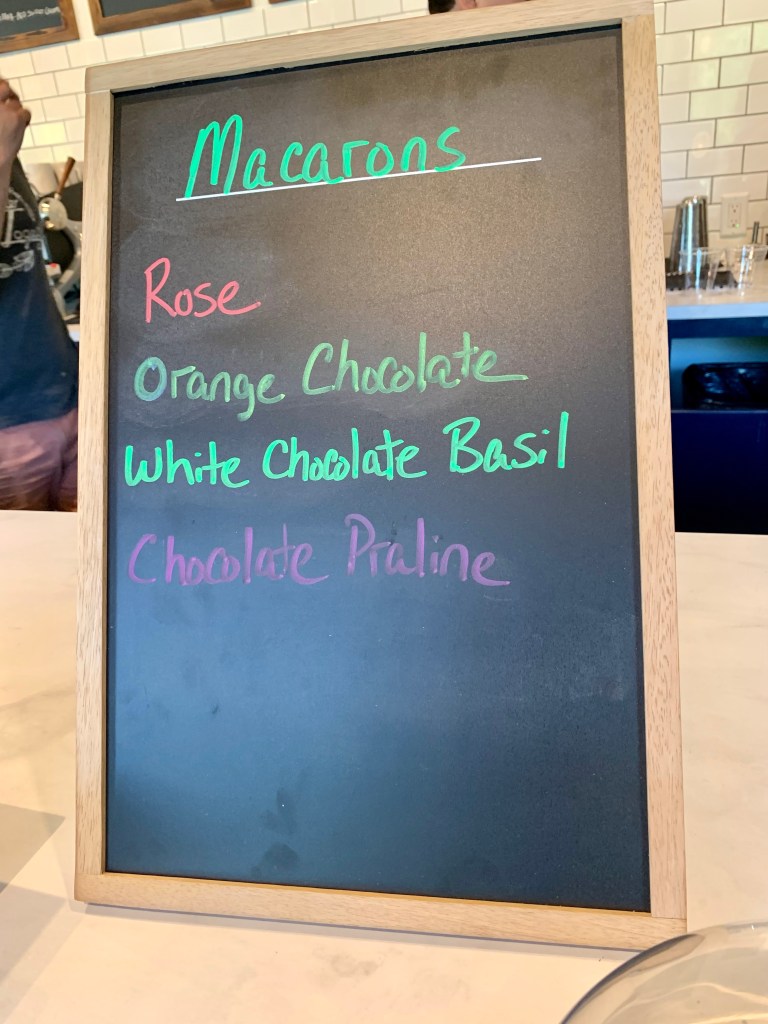 Macarons
Rose
Orange Chocolate
White Chocolate Basil
Chocolate Praline